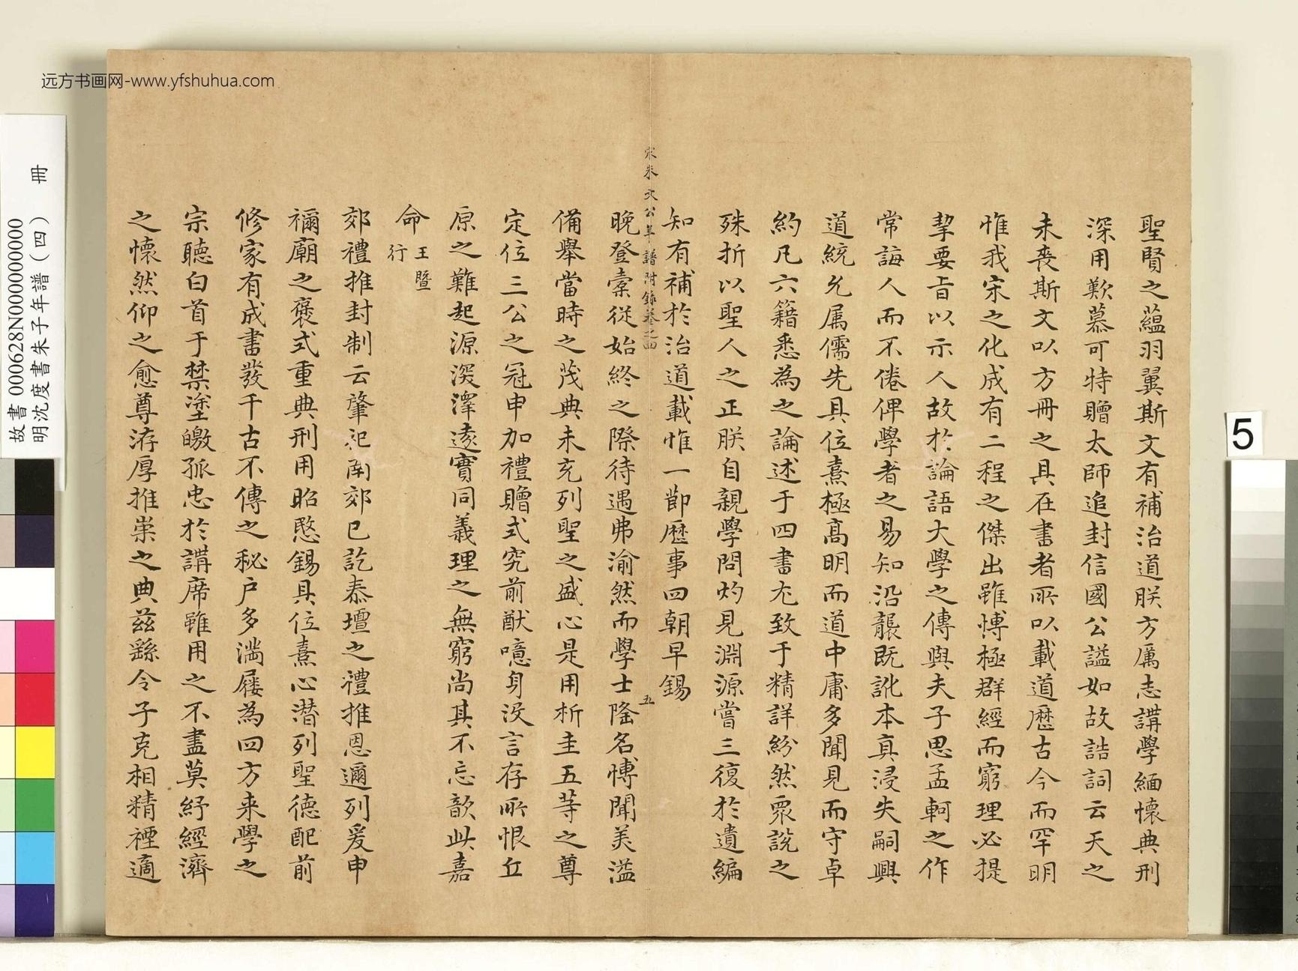 聖賢之蘊羽翼斯文有補治道朕方厲志講學緬懷典刑
深用歎慕可特贈太師追封信國公謚如故誥詞云天之
未喪斯文以方冊之具在書者所以載道歷古今而罕明
惟我宋之化成有二程之傑出雖博極群經而窮理必提
挈要旨以示人故於論語大學之傳與夫子思孟軻之作
常誨人而不倦俾學者之易知沿襲既訛本真浸失嗣興
道統允属儒先具位熹極高明而道中庸多聞見而守卓
約凡六籍悉為之論述于四書尤致于精詳紛然眾說之
殊折以聖人之正朕自親學問灼見淵源嘗三復於遺編
知有補於治道載惟一節歷事四朝早錫
宋朱文公年譜附錄卷之四
五
晚登橐從始終之際待遇弗渝然而學士隆名博聞美溢
備舉當時之茂典未充列聖之盛心是用析圭五等之尊
定位三公之冠申加禮贈式究前猷噫身沒言存所恨丘
原之難起源深澤遠實同義理之無窮尚其不忘歆此嘉
命王暨行
郊禮推封制云肇祀南郊已訖泰壇之禮推恩邇列爰申
禰廟之褒式重典刑用昭愍錫具位熹心潛列聖德配前
修家有成書發千古不傳之秘户多滿屨為四方来學之
宗聽白首于禁塗皦孤忠於講席雖用之不盡莫紓經濟
之懷然仰之愈尊洊厚推崇之典茲繇令子克相精禋適
远方书画网-www.yfshuhua.com
故書 000628N000000000
明沈度書朱子年譜(四) 冊
5